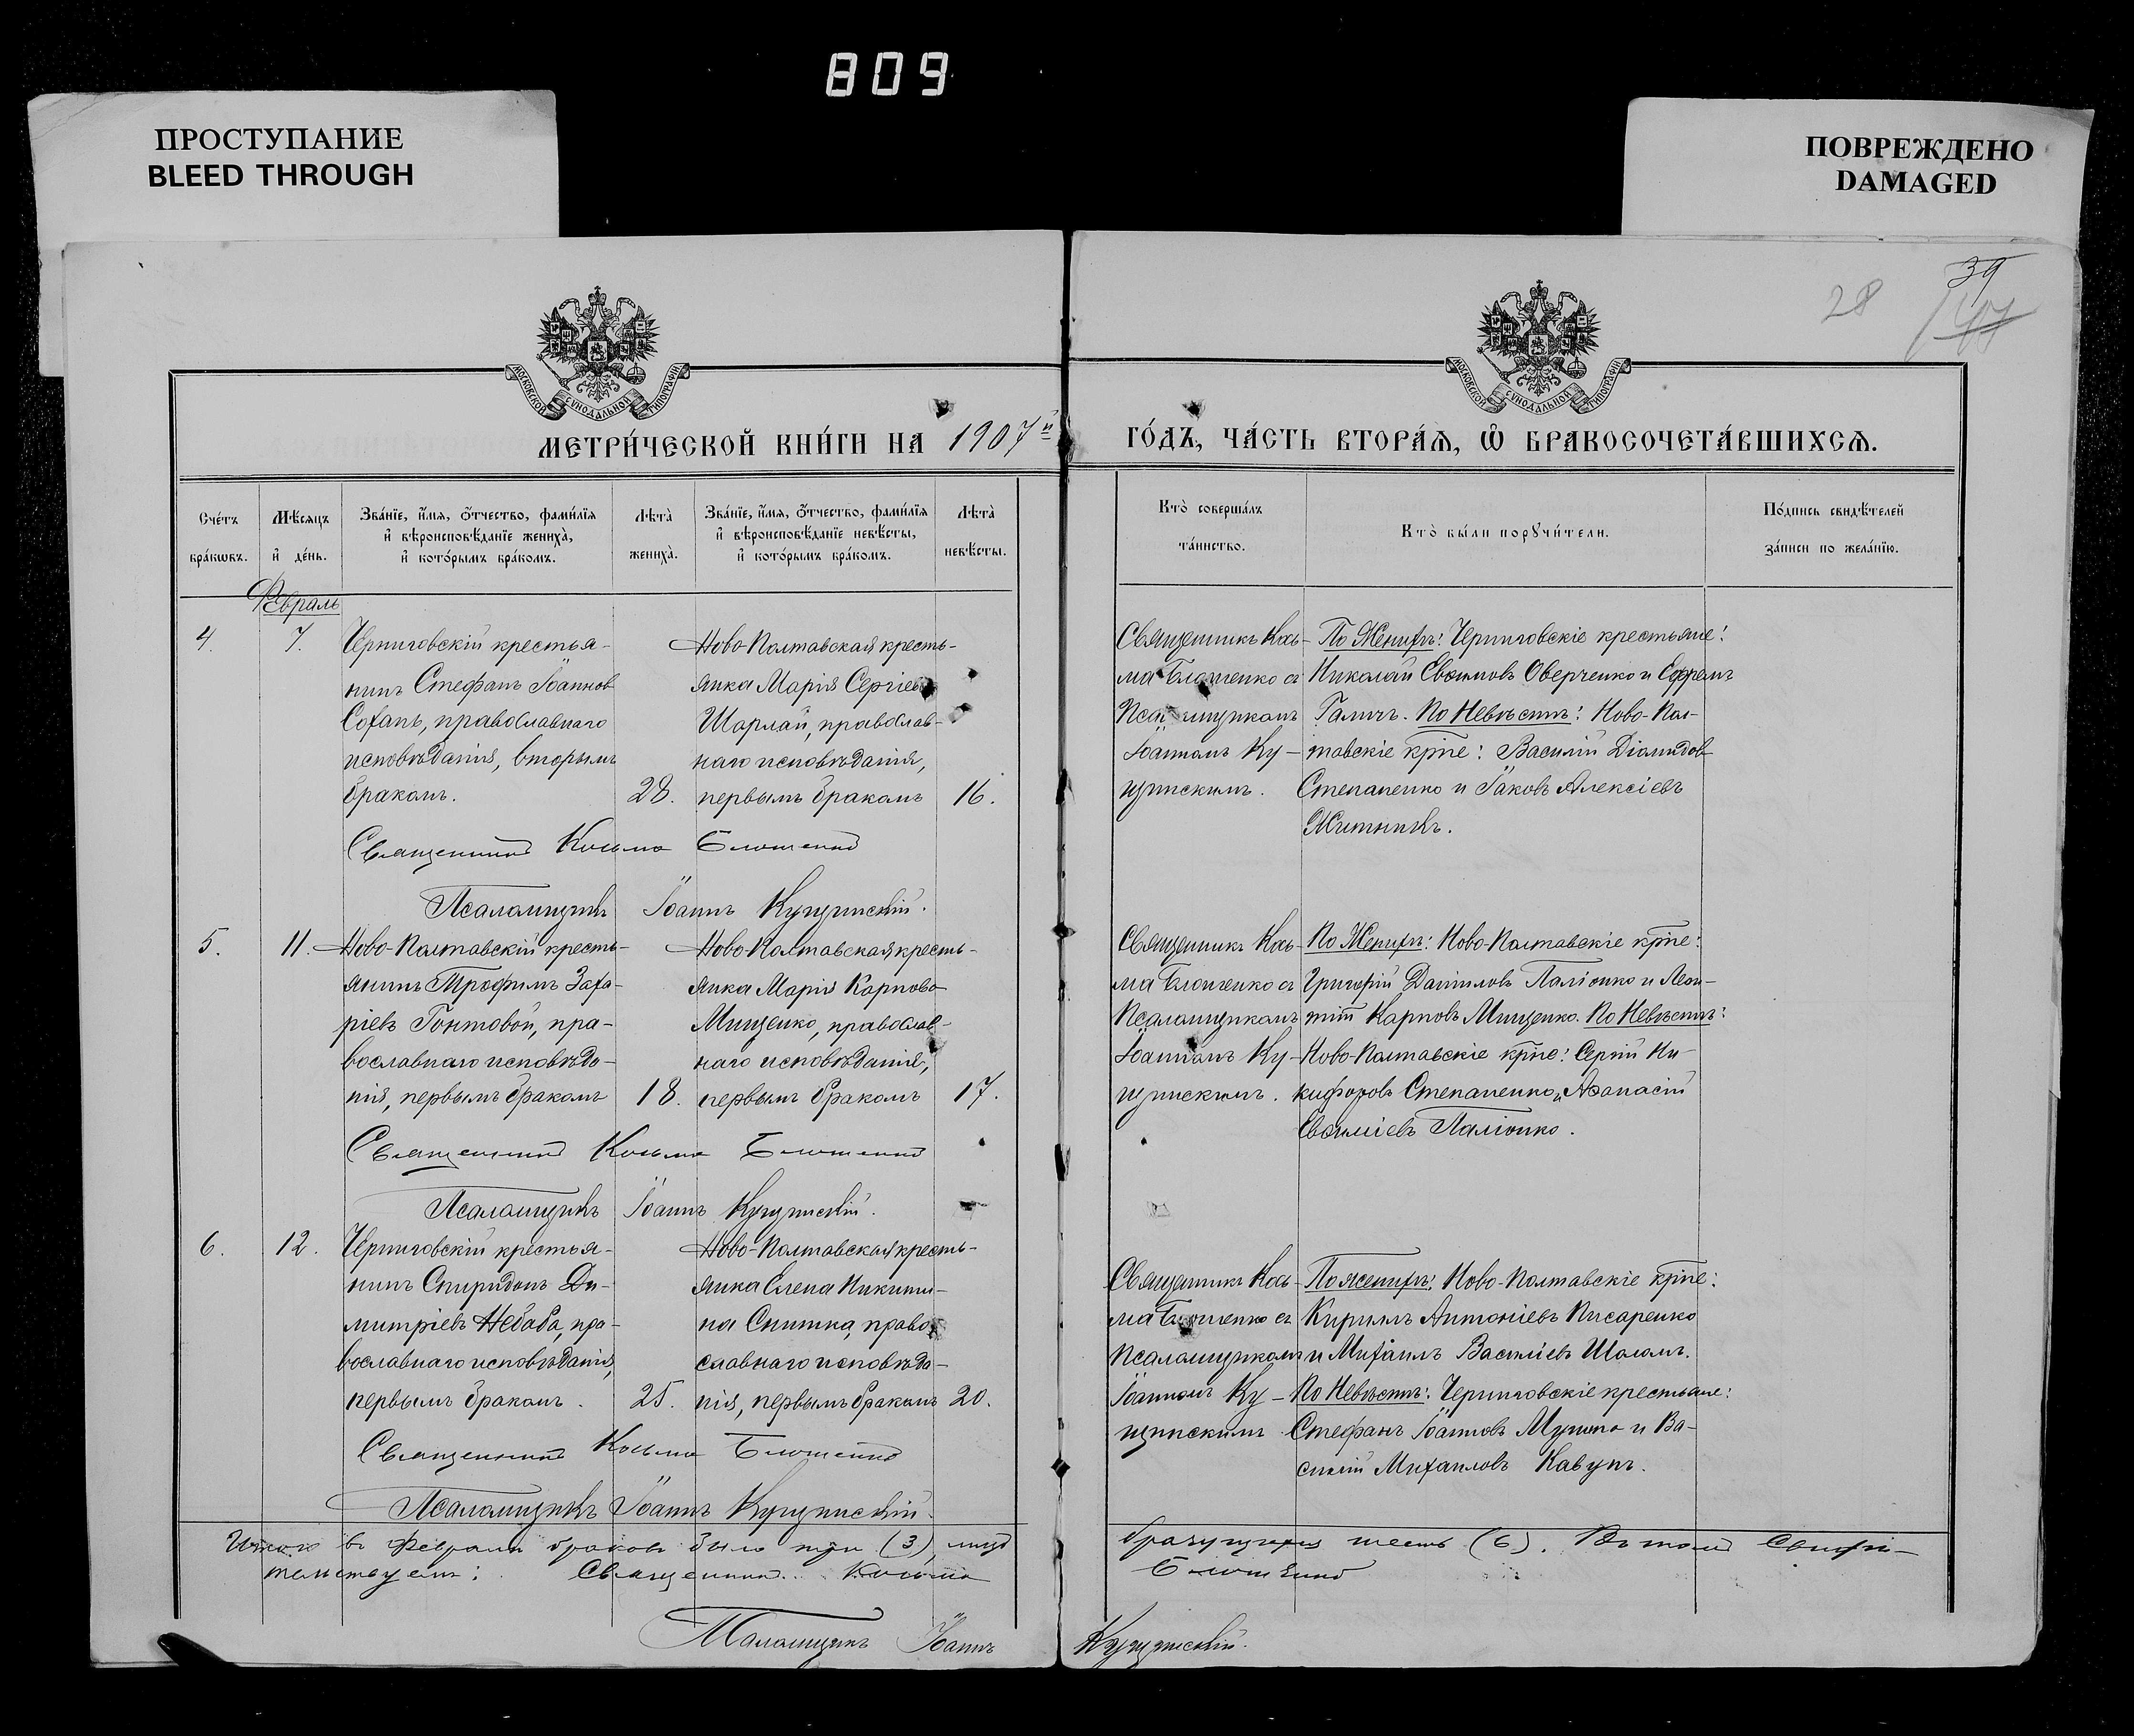 809
ПРОСТУПАНИЕ
BLEED THROUGH
ПОВРЕЖДЕНО
DAMAGED
39
28
МОСКОВСКОЙ СѴНОДАЛЬНОЙ ТИПОГРАФІИ
МОСКОВСКОЙ СѴНОДАЛЬНОЙ ТИПОГРАФІИ
МЕТРИ́ЧЕСКОЙ КНИ́ГИ НА 1907й
ГО́ДЪ, ЧА́СТЬ ВТОРА́Ѧ, Ѽ БРАКОСОЧЕТА́ВШИХСѦ.
Сче́тъ
бра́кѡвъ.
Мѣ́сяцъ
и҆ де́нь.
Зва́нїе, и҆́мя, ѻ҆́тчество, фами́лїя
и҆ вѣроисповѣ́данїе жениха̀,
и҆ кото́рымъ бра́комъ.
Лѣта̀
жениха̀.
Зва́нїе, и҆́мя, ѻ҆́тчество, фами́лїя
и҆ вѣроисповѣ́данїе невѣ́сты,
и҆ кото́рымъ бра́комъ.
Лѣта̀
невѣ́сты.
Кто̀ соверша́лъ
та́инство.
Кто̀ бы́ли порꙋчи́тели.
По́дпись свидѣ́телей
за́писи по жела́нїю.
Февраль
4.
7.
Черниговскій крестья-
нинъ Стефанъ Іоанновъ
Соханъ, православнаго
исповѣданія, вторымъ
бракомъ.
28.
Ново-Полтавская кресть-
янка Марія Сергіева
Шарлай, православ-
наго исповѣданія,
первымъ бракомъ
16.
Священникъ Кось-
ма Блошенко съ
Псаломщикомъ
Іоанномъ Ку-
щинскимъ.
По Женихѣ: Черниговскіе крестьяне:
Николай Евѳимовъ Оверченко и Ефремъ
Галичъ. По Невѣстѣ: Ново-Пол-
тавскіе кр͞не: Василій Діомидовъ
Степаненко и Іаковъ Алексіевъ
Житникъ.
Священникъ Косьма Блошенко
Псаломщикъ Іоаннъ Кущинскій.
5.
11.
Ново-Полтавскій кресть-
янинъ Трофимъ Заха-
ріевъ Гонтовой, пра-
вославнаго исповѣда-
нія, первымъ бракомъ
18.
Ново-Полтавская кресть-
янка Марія Карпова
Мищенко, православ-
наго исповѣданія,
первымъ бракомъ
17.
Священникъ Кось-
ма Блошенко съ
Псаломщикомъ
Іоанномъ Ку-
щинскимъ.
По Женихѣ: Ново-Полтавскіе кр͞не:
Григорій Даниловъ Паліенко и Леон-
тій Карповъ Мищенко. По Невѣстѣ:
Ново-Полтавскіе кр͞не: Сергій Ни-
кифоровъ Степаненко и Аѳанасій
Евѳиміевъ Паліенко.
Священникъ Косьма Блошенко
Псаломщикъ Іоаннъ Кущинскій.
6.
12.
Черниговскій крестья-
нинъ Спиридонъ Ди-
митріевъ Небаба, пра-
вославнаго исповѣданія,
первымъ бракомъ.
25.
Ново-Полтавская кресть-
янка Елена Никити-
на Снитка, право-
славнаго исповѣда-
нія, первымъ бракомъ
20.
Священникъ Кось-
ма Блошенко съ
Псаломщикомъ
Іоанномъ Ку-
щинскимъ
По женихѣ: Ново-Полтавскіе кр͞не:
Кириллъ Антоніевъ Писаренко
и Михаилъ Василіевъ Шаламъ.
По Невѣстѣ: Черниговскіе крестьяне:
Стефанъ Іоанновъ и Ва-
силій Михаиловъ Кавунъ.
Священникъ Косьма Блошенко
Псаломщикъ Іоаннъ Кущинскій.
Итого въ Февралѣ браковъ было три (3), лицъ
брачущихся шесть (6). Въ томъ свидѣ-
тельствуемъ: Священникъ Косьма
Блошенко
Псаломщикъ Іоаннъ
Кущинскій.